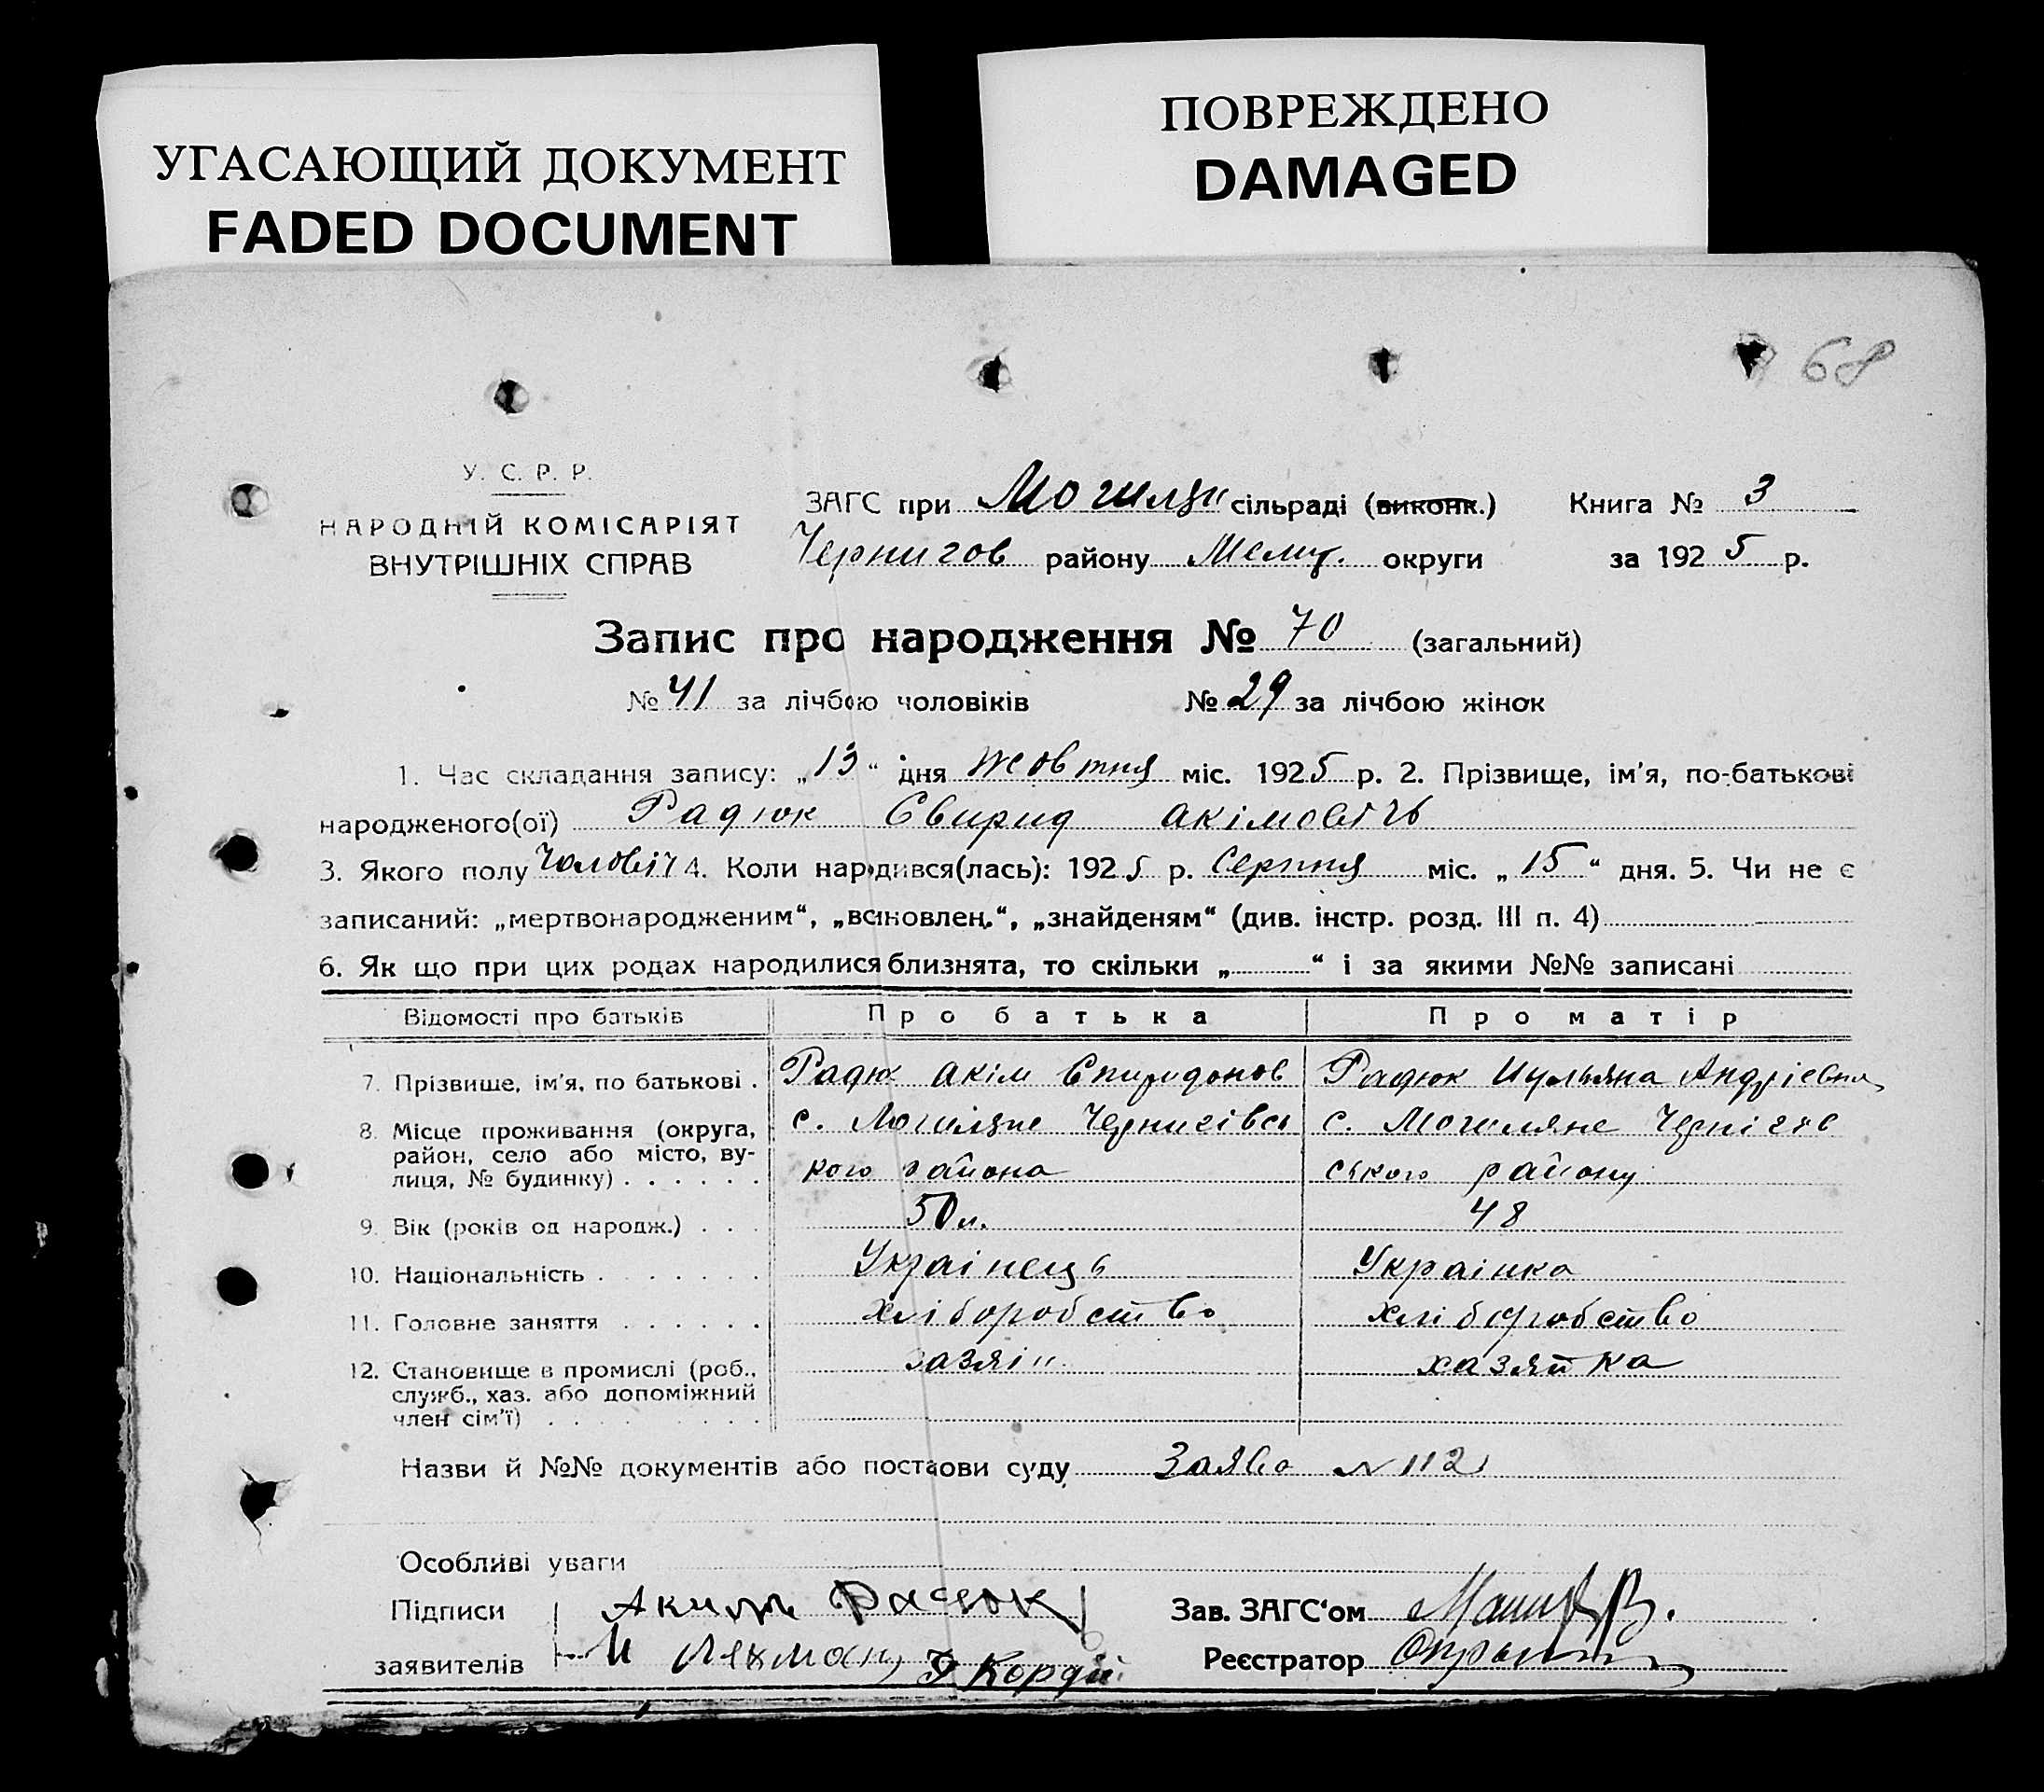 УГАСАЮЩИЙ ДОКУМЕНТ
FADED DOCUMENT
ПОВРЕЖДЕНО
DAMAGED
68
У. С. Р. Р.
НАРОДНІЙ КОМІСАРІЯТ
ВНУТРІШНІХ СПРАВ
ЗАГС при Могилян сільраді (виконк.) Книга № 3
Чернигов району Меліт. округи за 1925 р.
Запис про народження № 70 (загальний)
№ 41 за лічбою чоловіків № 29 за лічбою жінок
1. Час складання запису: „13“ дня жовтня міс. 1925 р. 2. Прізвище, ім'я, по-батькові
народженого(ої) Радюк Свирид Акімовічь
3. Якого полу чоловіч 4. Коли народився(лась): 1925 р. Серпня міс. „15“ дня. 5. Чи не є
записаний: „мертвонародженим“, „всиновлен.“, „знайденям“ (див. інстр. розд. III п. 4)
6. Як що при цих родах народилися близнята, то скільки „ “ і за якими №№ записані
Відомості про батьків Про батька Про матір
7. Прізвище, ім'я, по батькові . Радюк Акім Спиридонов Радюк Иульяна Андріевна
8. Місце проживання (округа, с. Могиляне Чернигівсь с. Могиляне Чернігів
район, село або місто, ву- кого района ського району
лиця, № будинку) . . . . . .
9. Вік (років од народж.) . . . 50 л. 48
10. Національність . . . . . . . Українець Українка
11. Головне заняття . . . . . . хліборобство хліборобство
12. Становище в промислі (роб., хазяін хазяйка
служб., хаз. або допоміжний
член сім'ї) . . . . . . . . .
Назви й №№ документів або постанови суду Заява № 112
Особливі уваги
Підписи Аким Радюк Зав. ЗАГС'ом
заявителів И Лехман Кордій Реєстратор